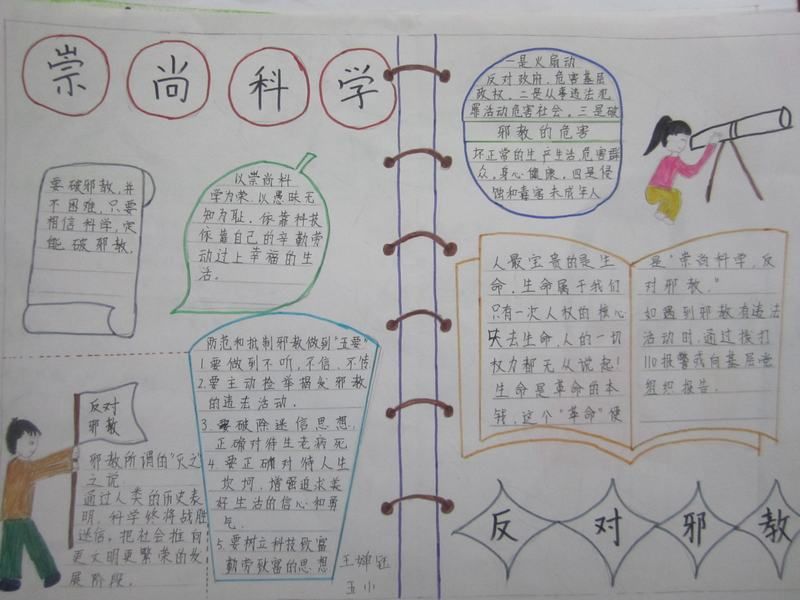 崇尚科学
要破邪教,并
不困难,只要
相信科学,定
能破邪教.
以崇尚科
学为荣,以愚昧无
知为耻,依靠科技
依靠自己的辛勤劳
动过上幸福的生
活.
防范和抵制邪教做到"五要"
1.要做到不听,不信,不传
2.要主动检举揭发邪教
的违法活动.
3.要破除迷信思想,
正确对待生老病死
4.要正确对待人生
坎坷,增强追求美
好生活的信心和勇
气.
5.要树立科技致富
勤劳致富的思想
反对
邪教
邪教所谓的"灭之"
之说
通过人类的历史表
明,科学终将战胜
迷信,把社会推向
更文明更繁荣的发
展阶段.
五小
一是火扇动
反对政府,危害基层
政权,二是从事违法犯
罪活动危害社会,三是破
邪教的危害
坏正常的生产生活危害群
众,身心健康,四是侵
蚀和毒害未成年人
人最宝贵的是生
命,生命属于我们
只有一次人权的核心
失去生命,人的一切
权力都无从说起!
生命是革命的本
钱,这个"革命"便
是"崇尚科学,反
对邪教."
如遇到邪教有违法
活动时,通过拨打
110报警或向基层党
组织报告.
反对邪教